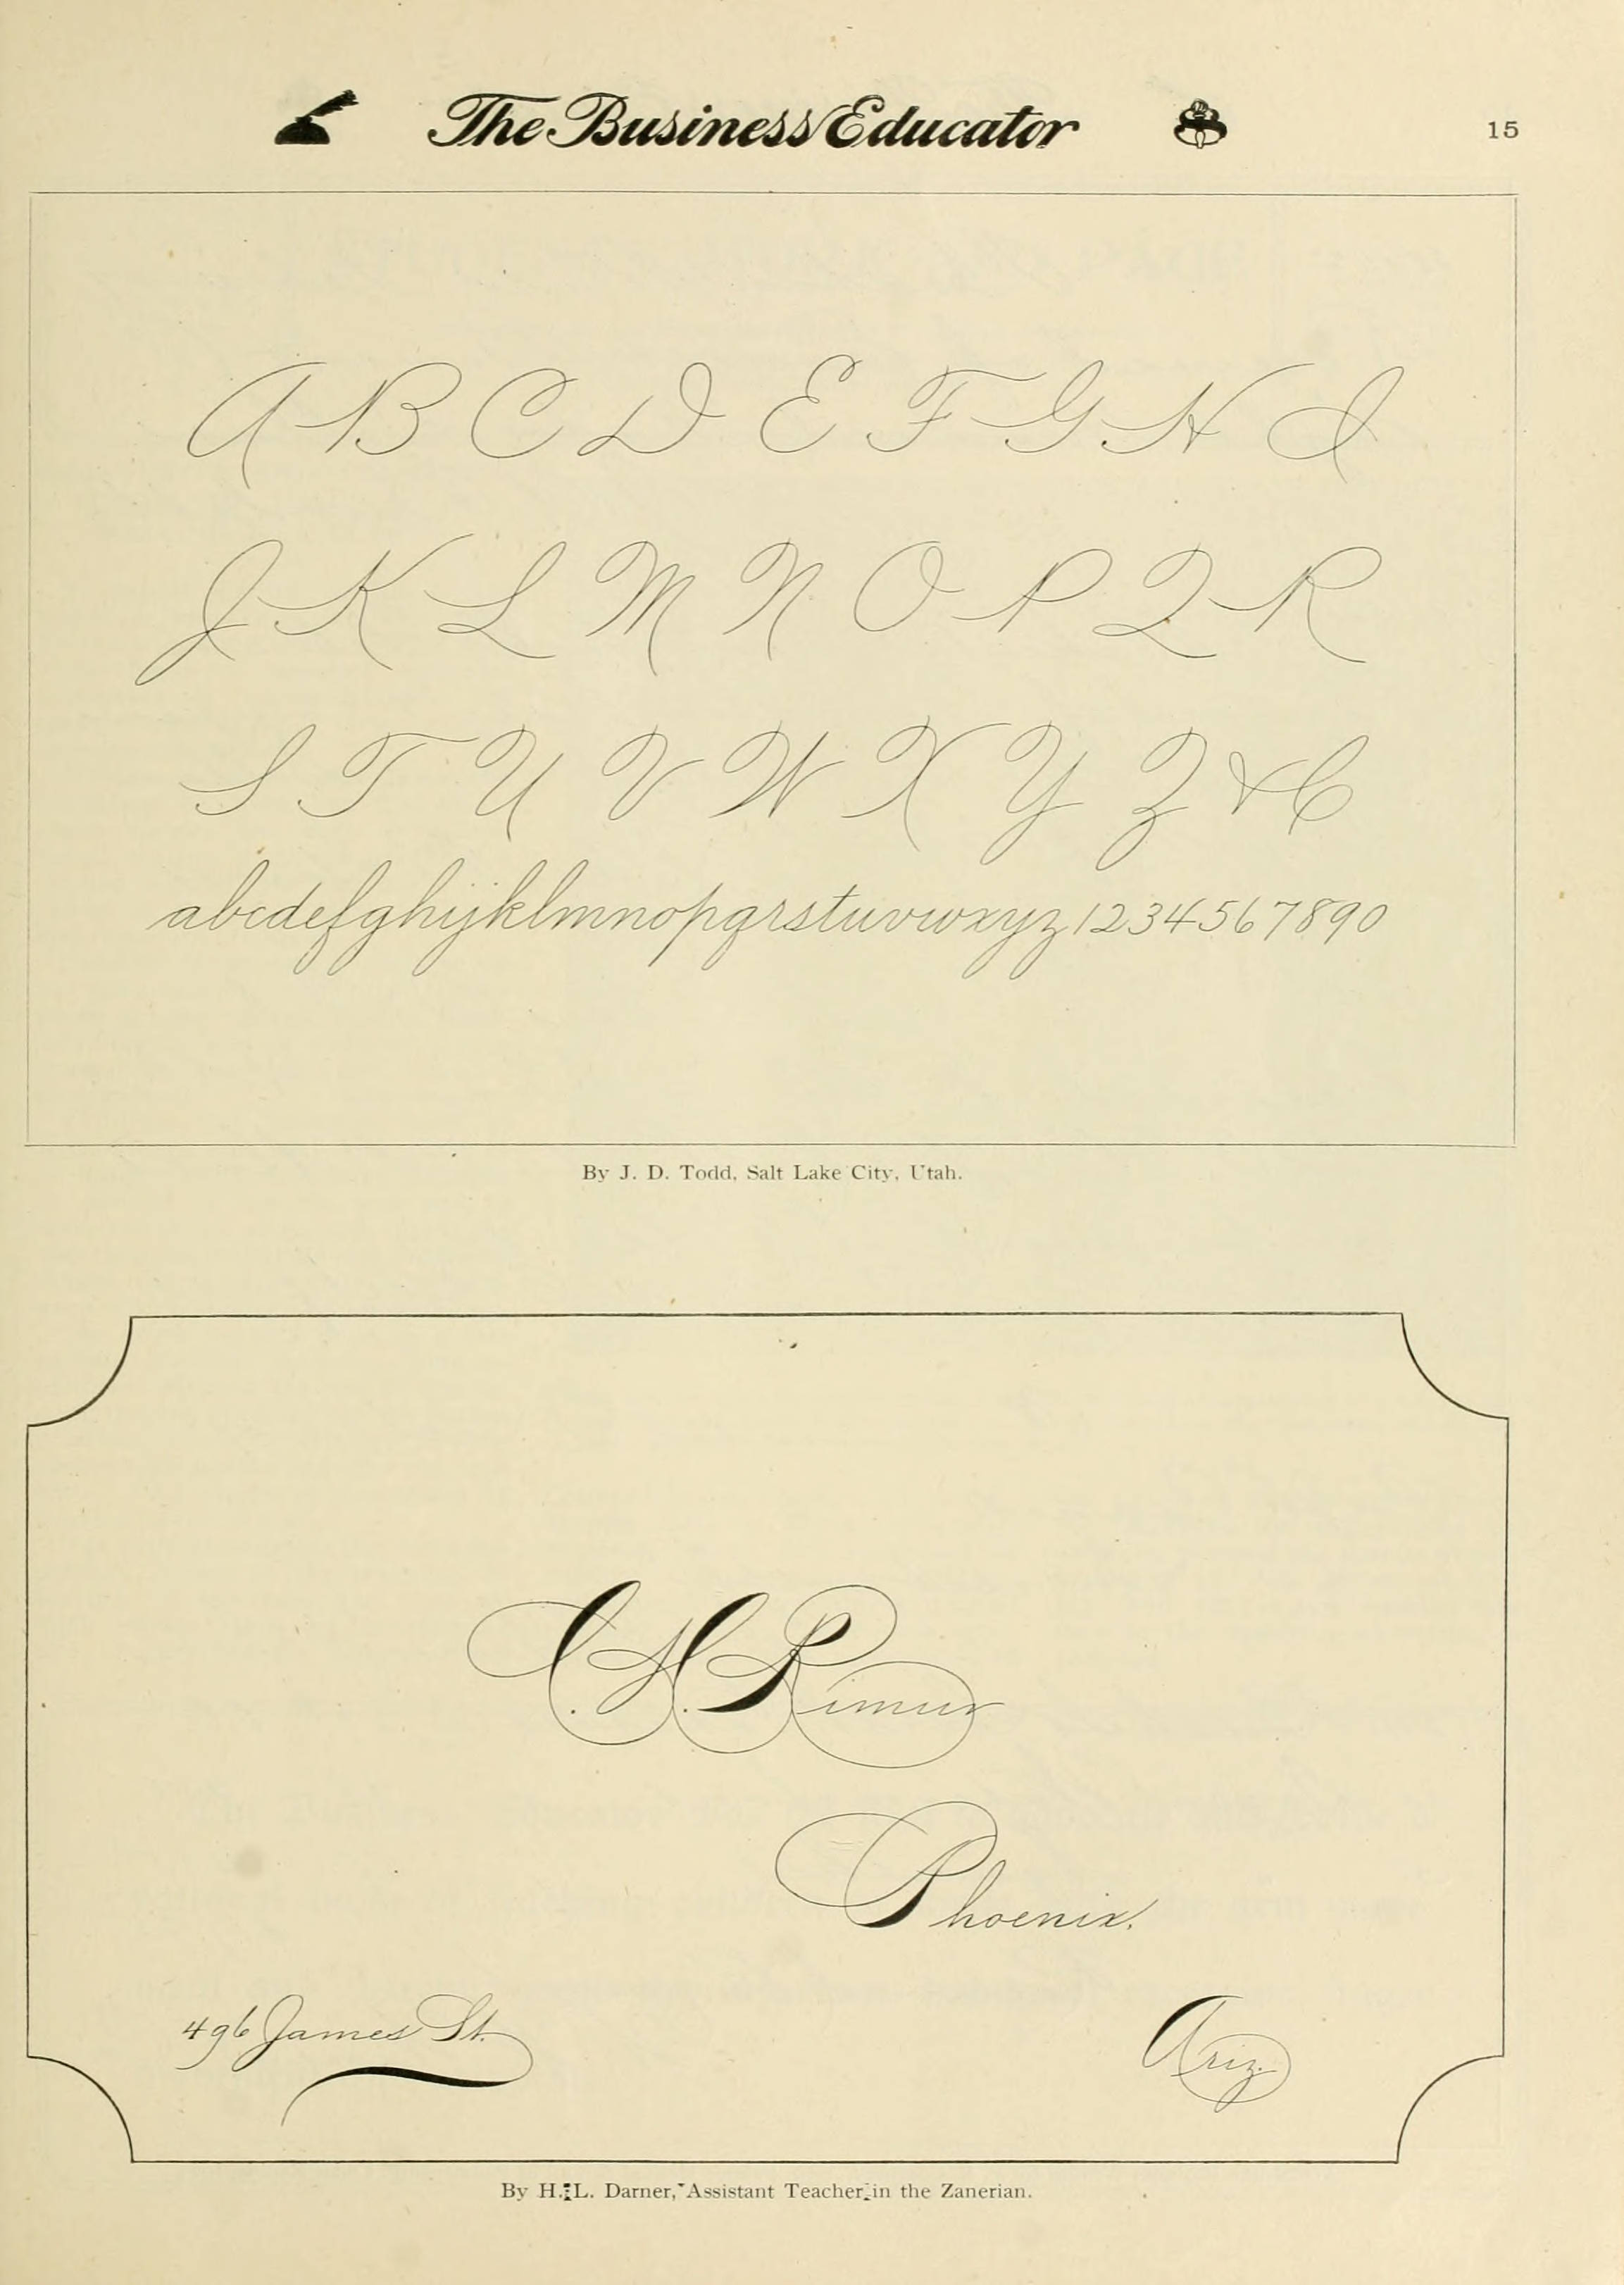 The Business Educator 15
A B C D E F G H I
J K L M N O P Q R
S T U V W X Y Z & C
abcdefghijklmnopqrstuvwxyz 1234567890
By J. D. Todd, Salt Lake City, Utah.
Phoenix.
496 James St.
Ariz.
By H. L. Darner, Assistant Teacher in the Zanerian.